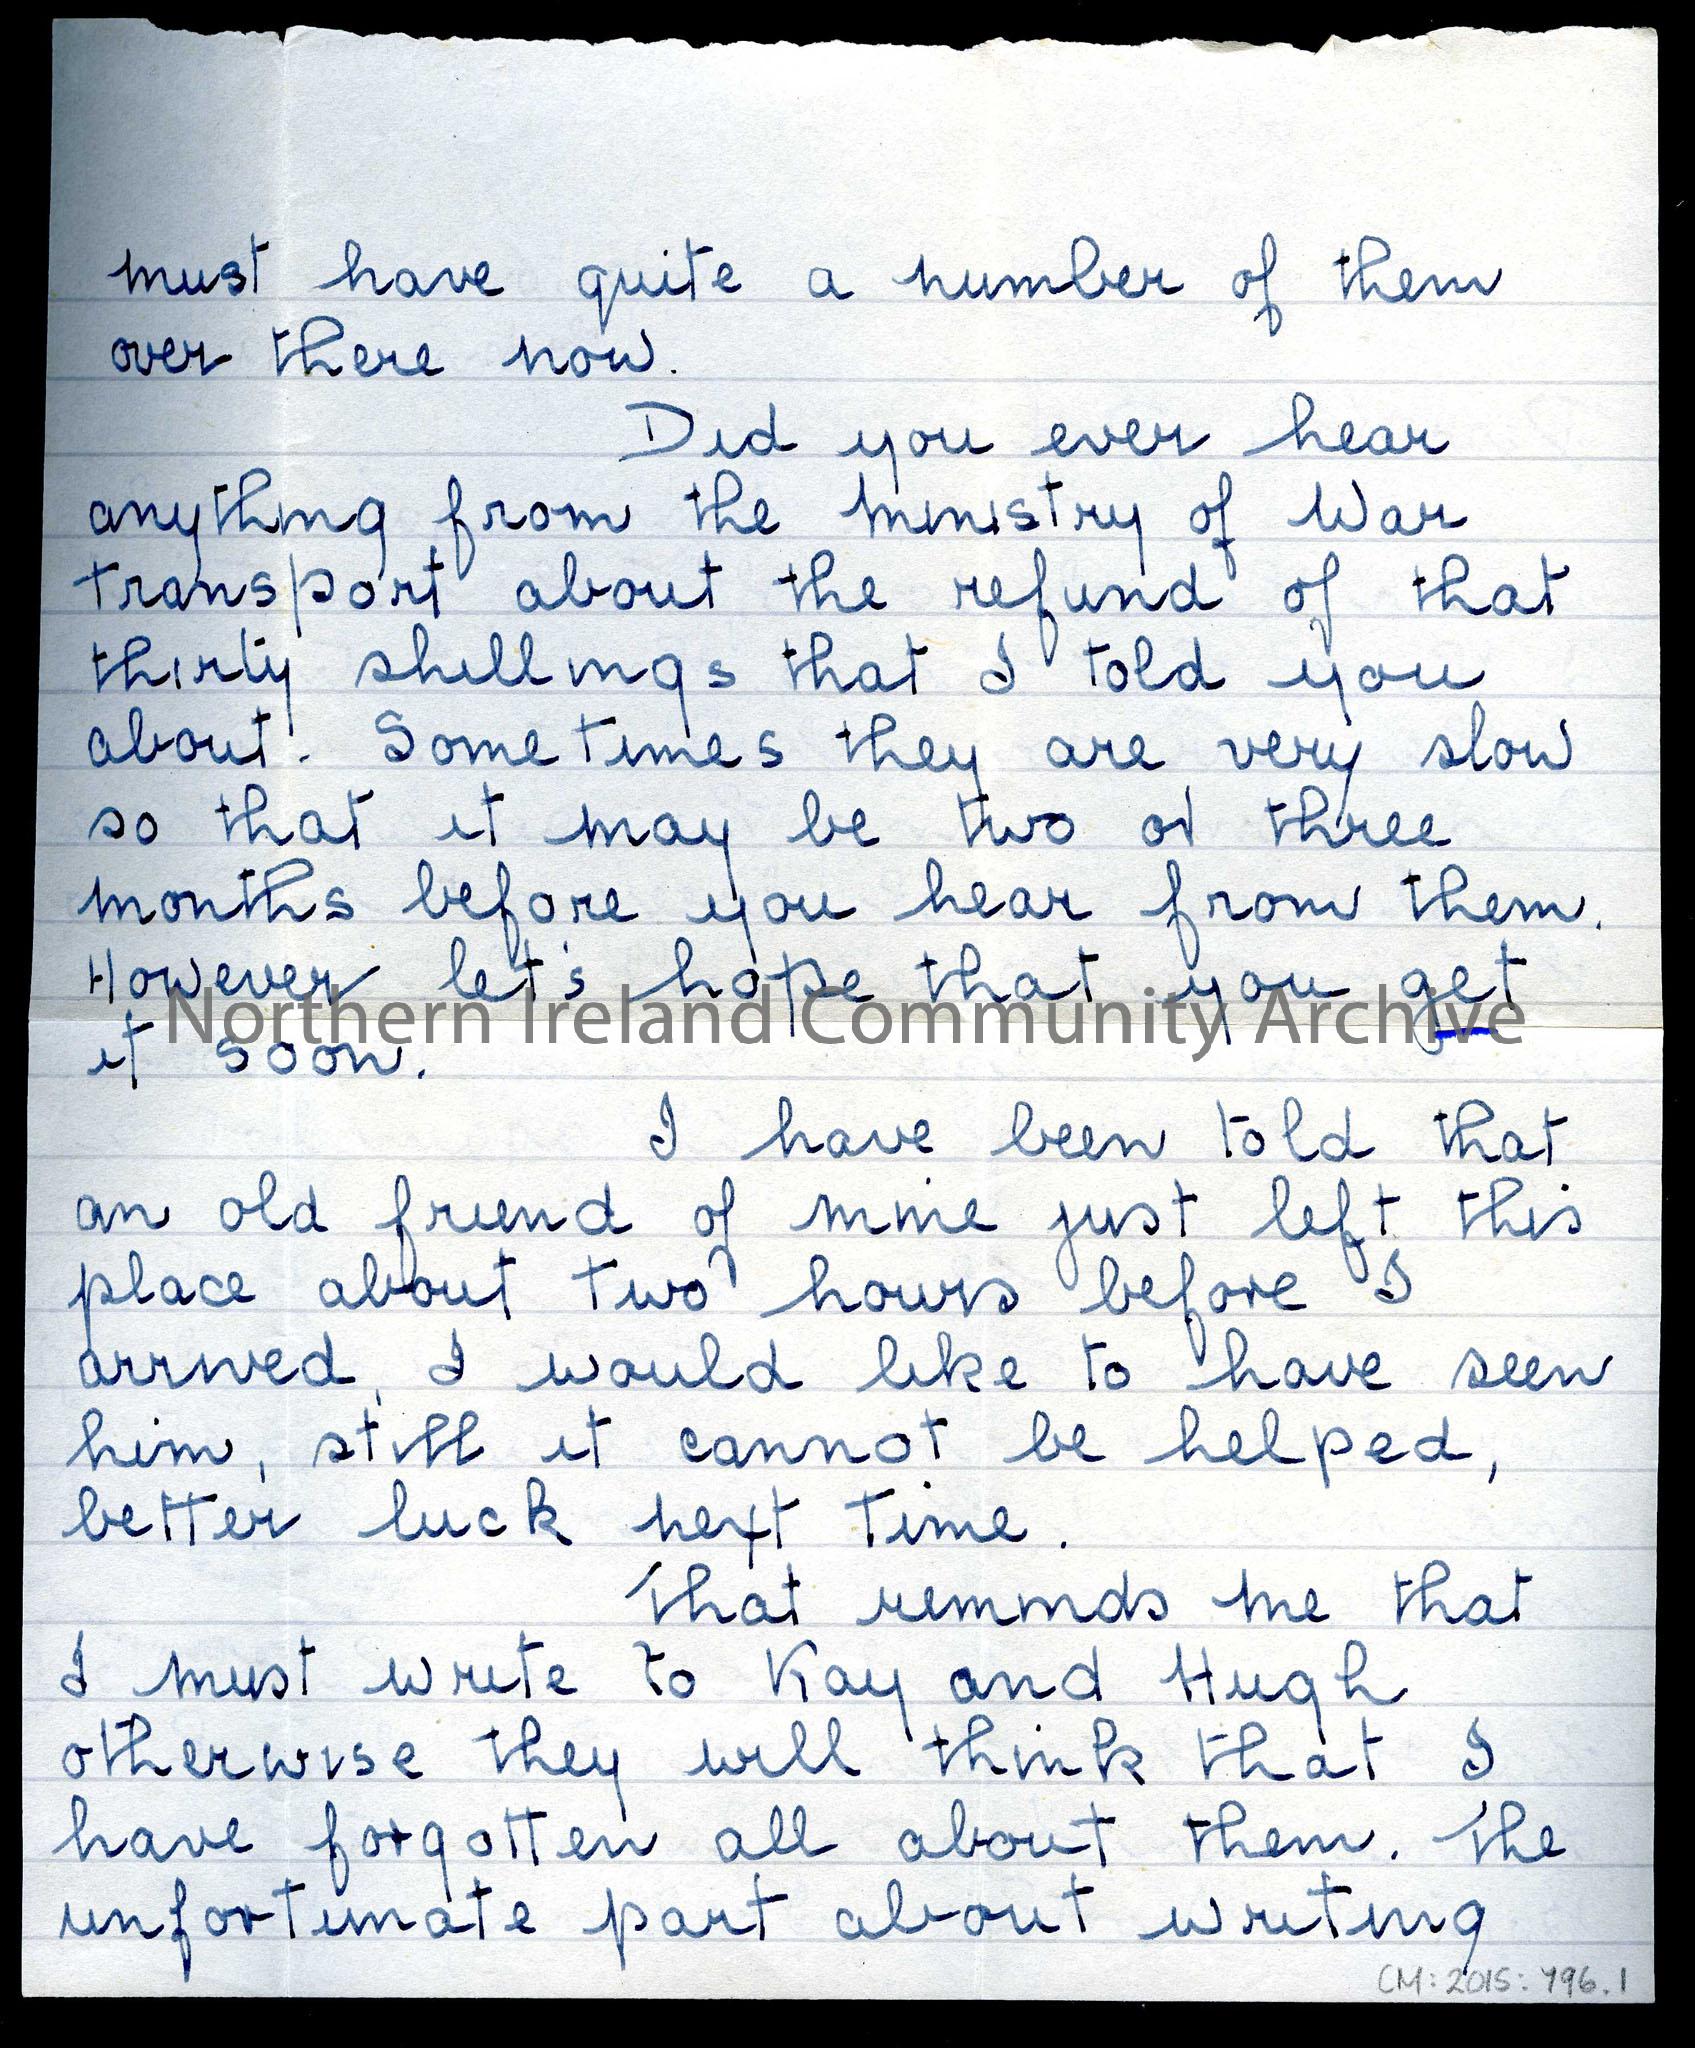 must have quite a number of them
over there now.
Did you ever hear
anything from the Ministry of War
Transport about the refund of that
thirty shillings that I told you
about. Sometimes they are very slow
so that it may be two or three
months before you hear from them.
However let's hope that you get
Northern Ireland Community Archive
it soon.
I have been told that
an old friend of mine just left this
place about two hours before I
arrived, I would like to have seen
him, still it cannot be helped,
better luck next time.
That reminds me that
I must write to Kay and Hugh
otherwise they will think that I
have forgotten all about them. The
unfortunate part about writing
CM:2015:796.1